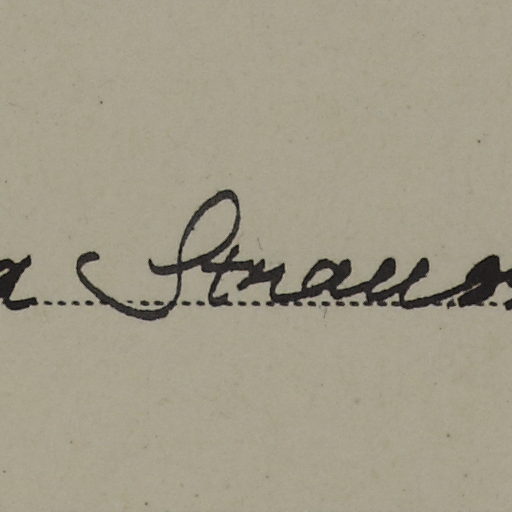 a Strauss